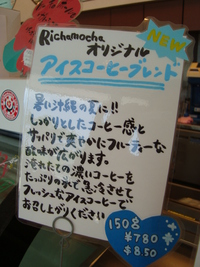 Richamocha
オリジナル
NEW
アイスコーヒーブレンド
暑い沖縄の夏に!!
しっかりとしたコーヒー感と
サッパリで爽やかにフルーティーな
酸味が広がります。
淹れたての濃いコーヒーを
たっぷりの氷で急冷させて
フレッシュなアイスコーヒーで
お召し上がりください
150g
¥780
$8.50